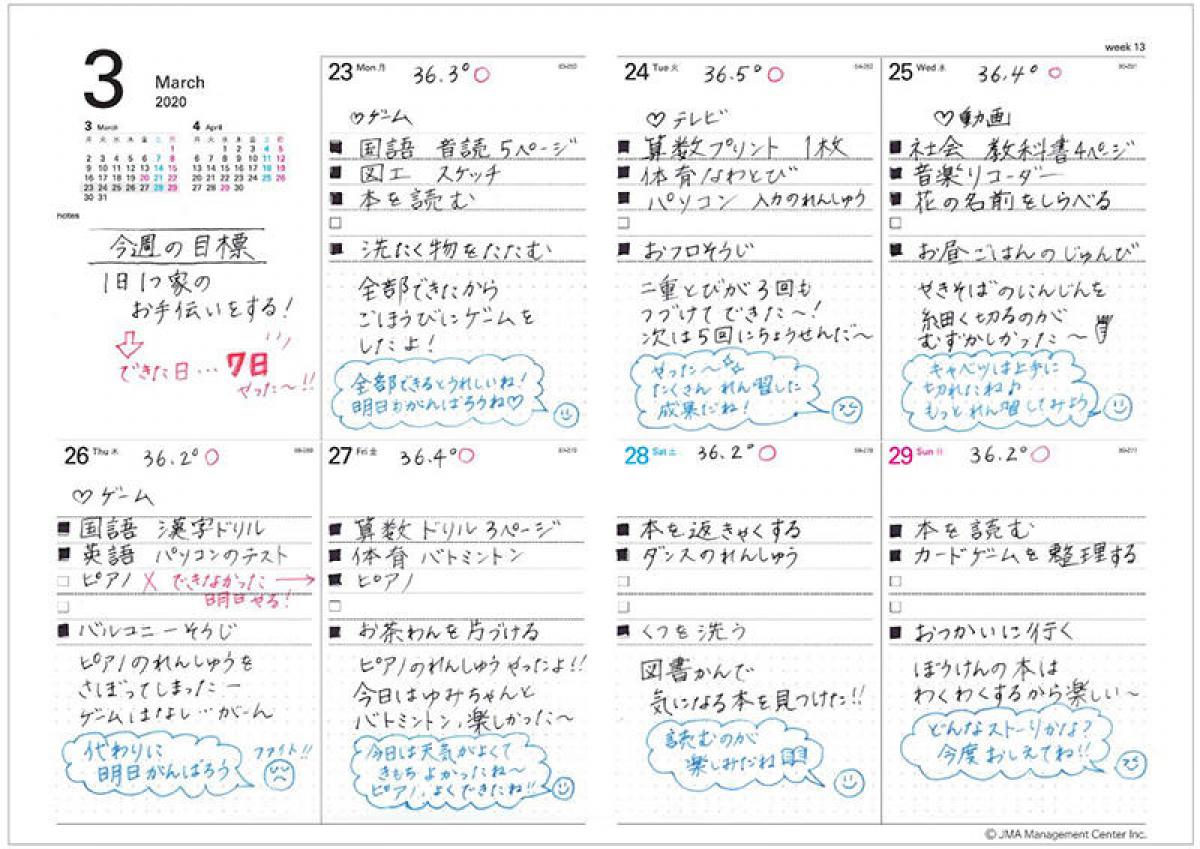 week 13
3
March
2020
3 March
4 April
月 火 水 木 金 土 日
1
2 3 4 5 6 7 8
9 10 11 12 13 14 15
16 17 18 19 20 21 22
23 24 25 26 27 28 29
30 31
月 火 水 木 金 土 日
1 2 3 4 5
6 7 8 9 10 11 12
13 14 15 16 17 18 19
20 21 22 23 24 25 26
27 28 29 30
notes
今週の目標
1日1つ家の
お手伝いをする!
できた日… 7日
やった〜!!
23 Mon 月 36.3° ○
♡ゲーム
■ 国語 音読 5ページ
■ 図工 スケッチ
■ 本を読む
□
■ 洗たく物をたたむ
全部できたから
ごほうびにゲームを
したよ!
全部できるとうれしいね!
明日もがんばろうね♡
24 Tue 火 36.5° ○
♡テレビ
■ 算数プリント 1枚
■ 体育なわとび
■ パソコン 入力のれんしゅう
□
■ おフロそうじ
二重とびが3回も
つづけてできた〜!
次は5回にちょうせんだ〜
やった〜☆
たくさん れん習した
成果だね!
25 Wed 水 36.4° ○
♡動画
■ 社会 教科書4ページ
■ 音楽リコーダー
■ 花の名前をしらべる
□
■ お昼ごはんのじゅんび
やきそばのにんじんを
細く切るのが
むずかしかった〜
キャベツは上手に
切れたね♪
もっとれん習してみよう
26 Thu 木 36.2° ○
♡ゲーム
■ 国語 漢字ドリル
■ 英語 パソコンのテスト
□ ピアノ × できなかった →
明日やる!
□
■ バルコニーそうじ
ピアノのれんしゅうを
さぼってしまったー
ゲームはなし…がーん
代わりに
明日がんばろう
ファイト!!
27 Fri 金 36.4° ○
■ 算数 ドリル 3ページ
■ 体育 バトミントン
■ ピアノ
□
■ お茶わんを片づける
ピアノのれんしゅうやったよ!!
今日はゆみちゃんと
バトミントン、楽しかった〜
今日は天気がよくて
きもちよかったね〜
ピアノ、よくできたね!!
28 Sat 土 36.2° ○
■ 本を返きゃくする
■ ダンスのれんしゅう
□
□
■ くつを洗う
図書かんで
気になる本を見つけた!!
読むのが
楽しみだね
29 Sun 日 36.2° ○
■ 本を読む
■ カードゲームを整理する
□
□
■ おつかいに行く
ぼうけんの本は
わくわくするから楽しい〜
どんなストーリかな?
今度おしえてね!!
© JMA Management Center Inc.